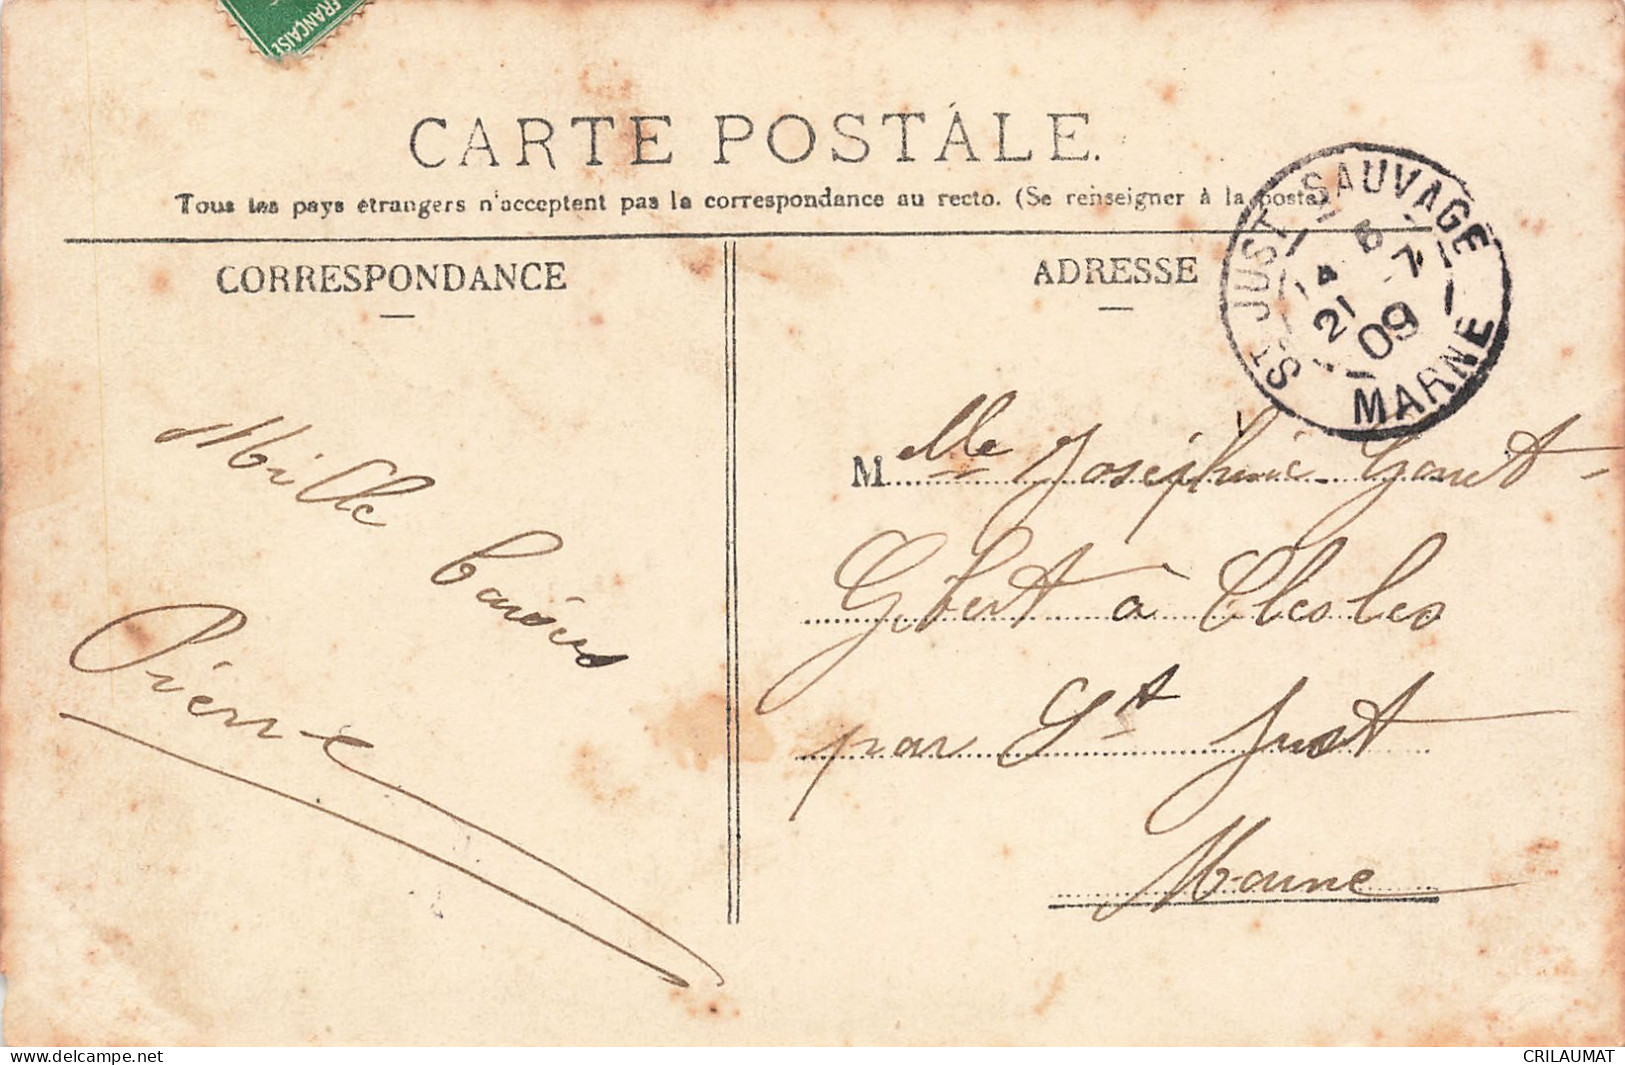 FRANÇAISE
CARTE POSTALE.
Tous les pays étrangers n'acceptent pas la correspondance au recto. (Se renseigner à la poste)
CORRESPONDANCE
ADRESSE
ST-JUST SAUVAGE
21 -7
09
MARNE
Mille
baisers
Pierre
Melle Joséphine
à
par St Just
Marne
www.delcampe.net
CRILAUMAT